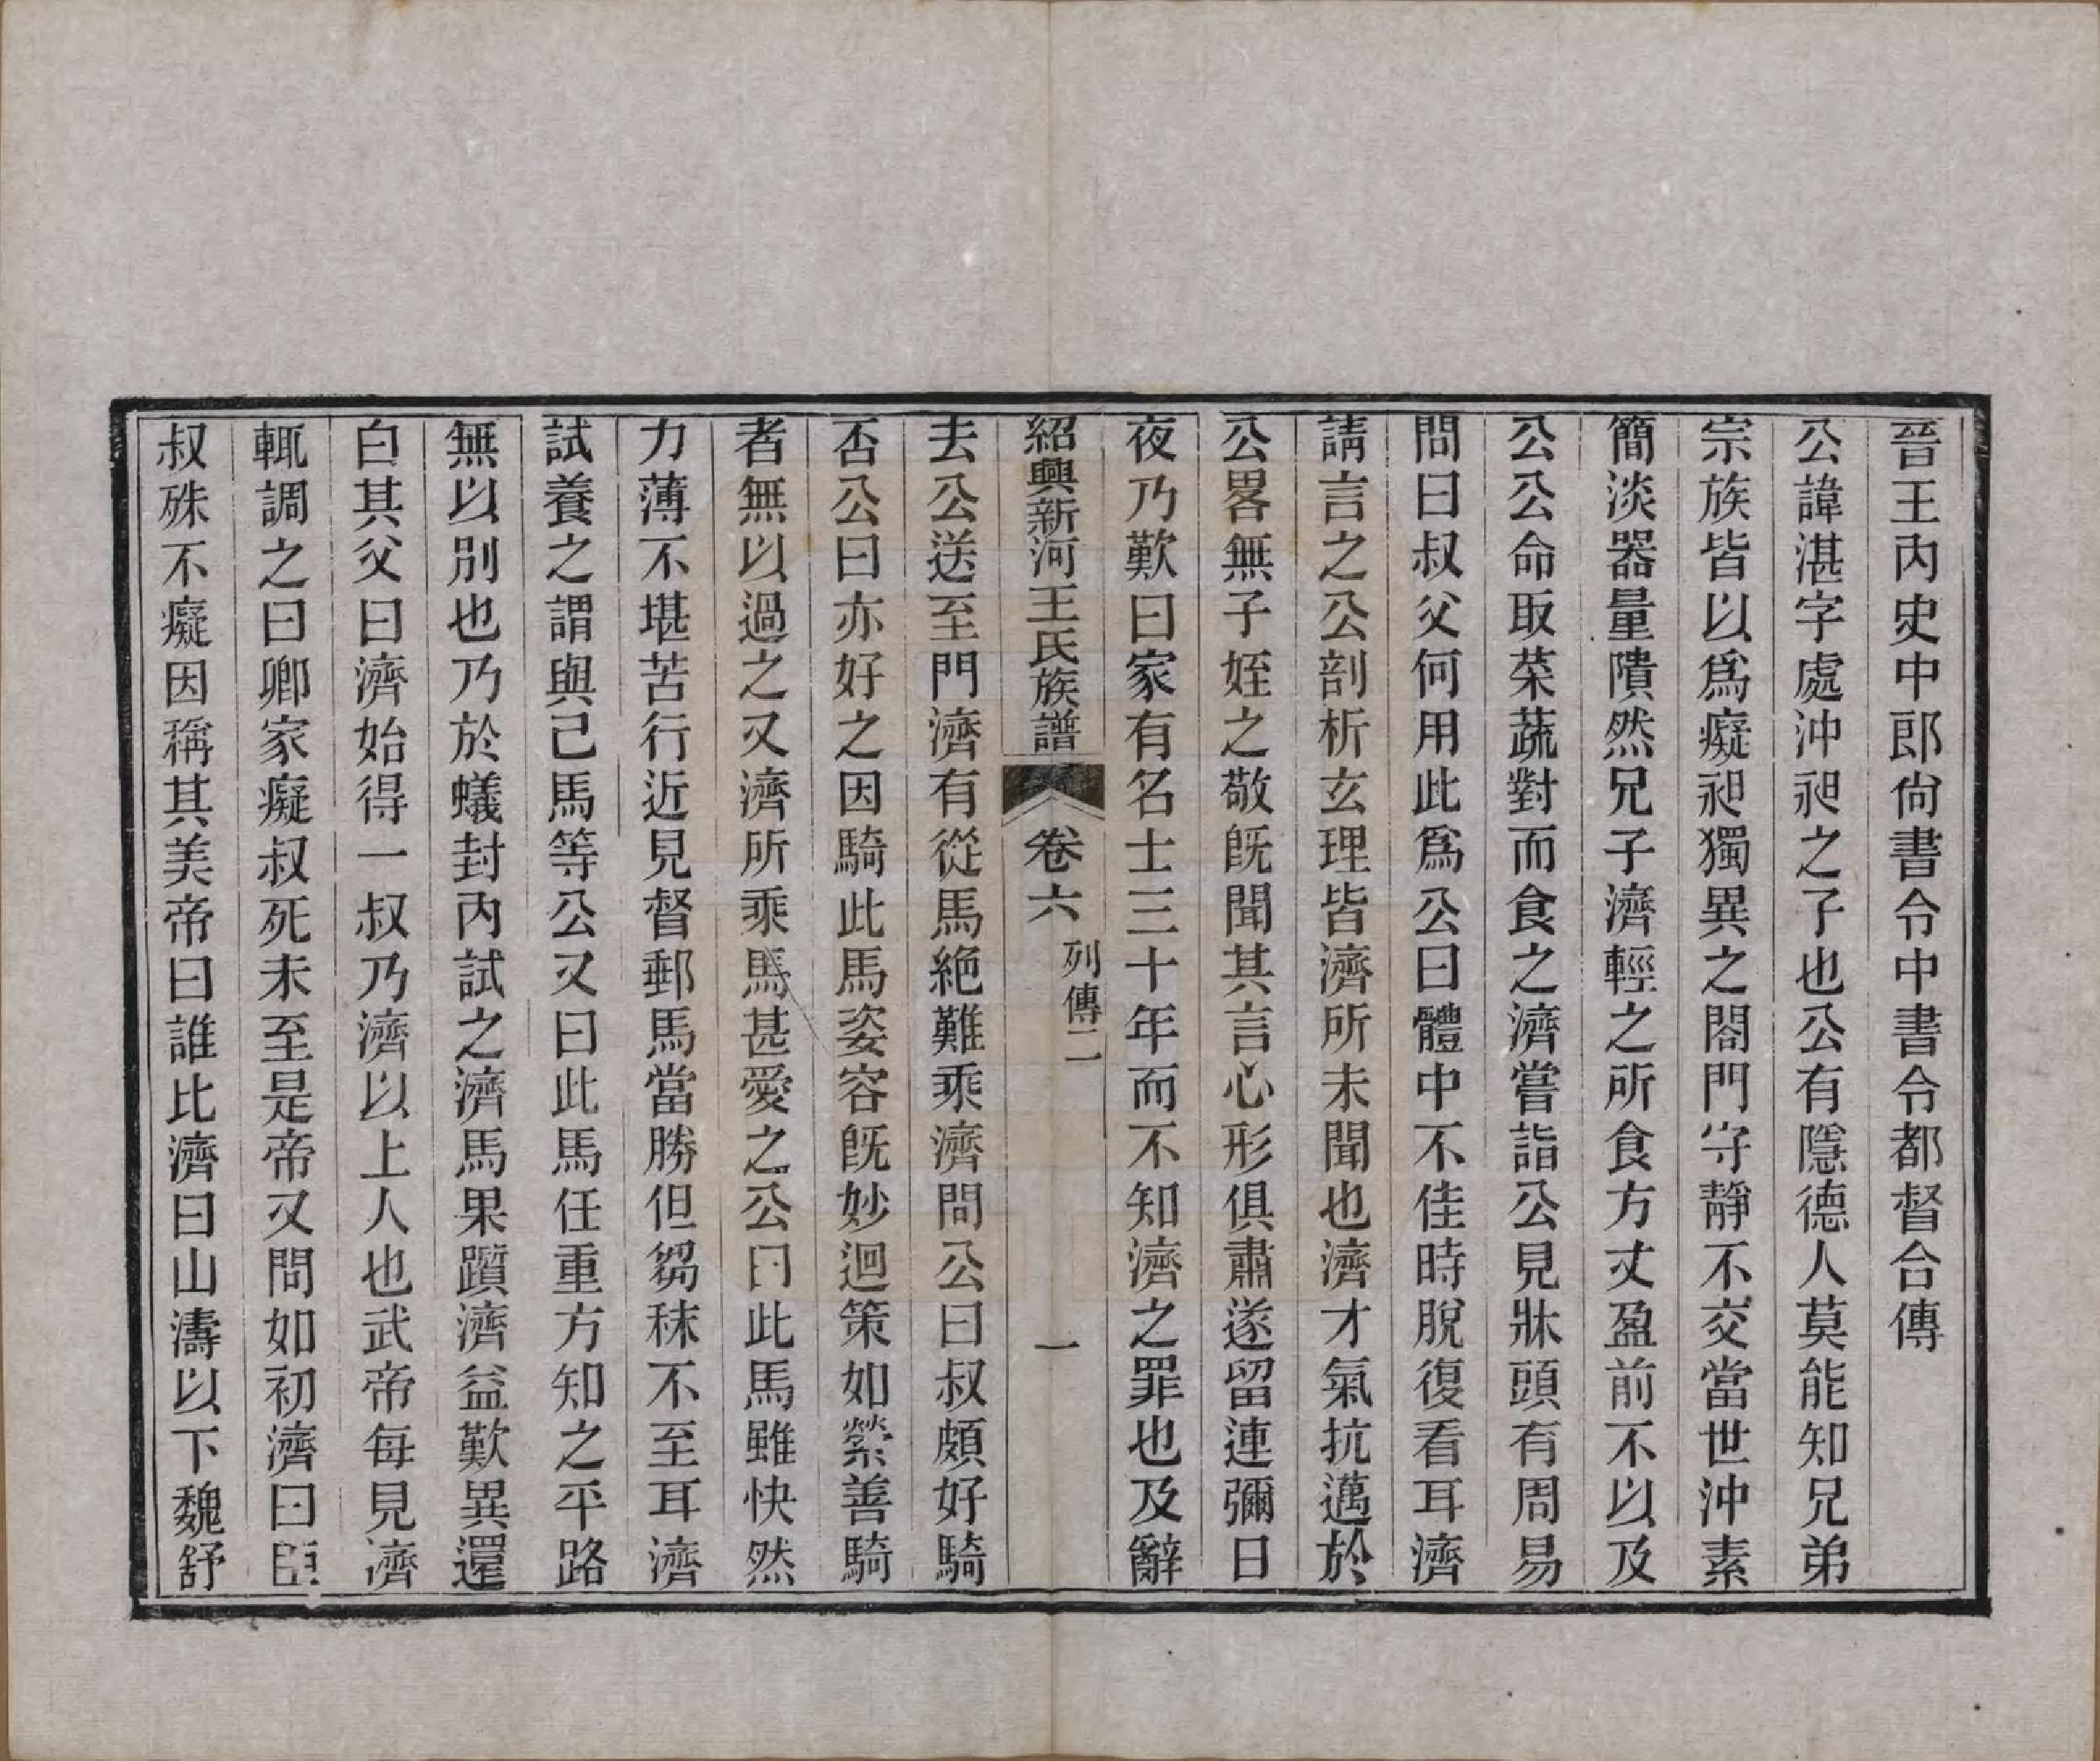 晉王內史中郎尙書令中書令都督合傳
公諱湛字處沖昶之子也公有隱德人莫能知兄弟
宗族皆以爲癡昶獨異之閤門守靜不交當世沖素
簡淡器量隤然兄子濟輕之所食方丈盈前不以及
公公命取菜蔬對而食之濟嘗詣公見牀頭有周易
問曰叔父何用此爲公曰體中不佳時脫復看耳濟
請言之公剖析玄理皆濟所未聞也濟才氣抗邁於
公畧無子姪之敬旣聞其言心形俱肅遂留連彌日
夜乃歎曰家有名士三十年而不知濟之罪也及辭
紹興新河王氏族譜 卷六 列傳二 一
去公送至門濟有從馬絕難乘濟問公曰叔頗好騎
否公曰亦好之因騎此馬姿容旣妙迴策如縈善騎
者無以過之又濟所乘馬甚愛之公曰此馬雖快然
力薄不堪苦行近見督郵馬當勝但芻秣不至耳濟
試養之謂與己馬等公又曰此馬任重方知之平路
無以別也乃於蟻封內試之濟馬果躓濟益歎異還
白其父曰濟始得一叔乃濟以上人也武帝每見濟
輒調之曰卿家癡叔死未至是帝又問如初濟曰臣
叔殊不癡因稱其美帝曰誰比濟曰山濤以下魏舒